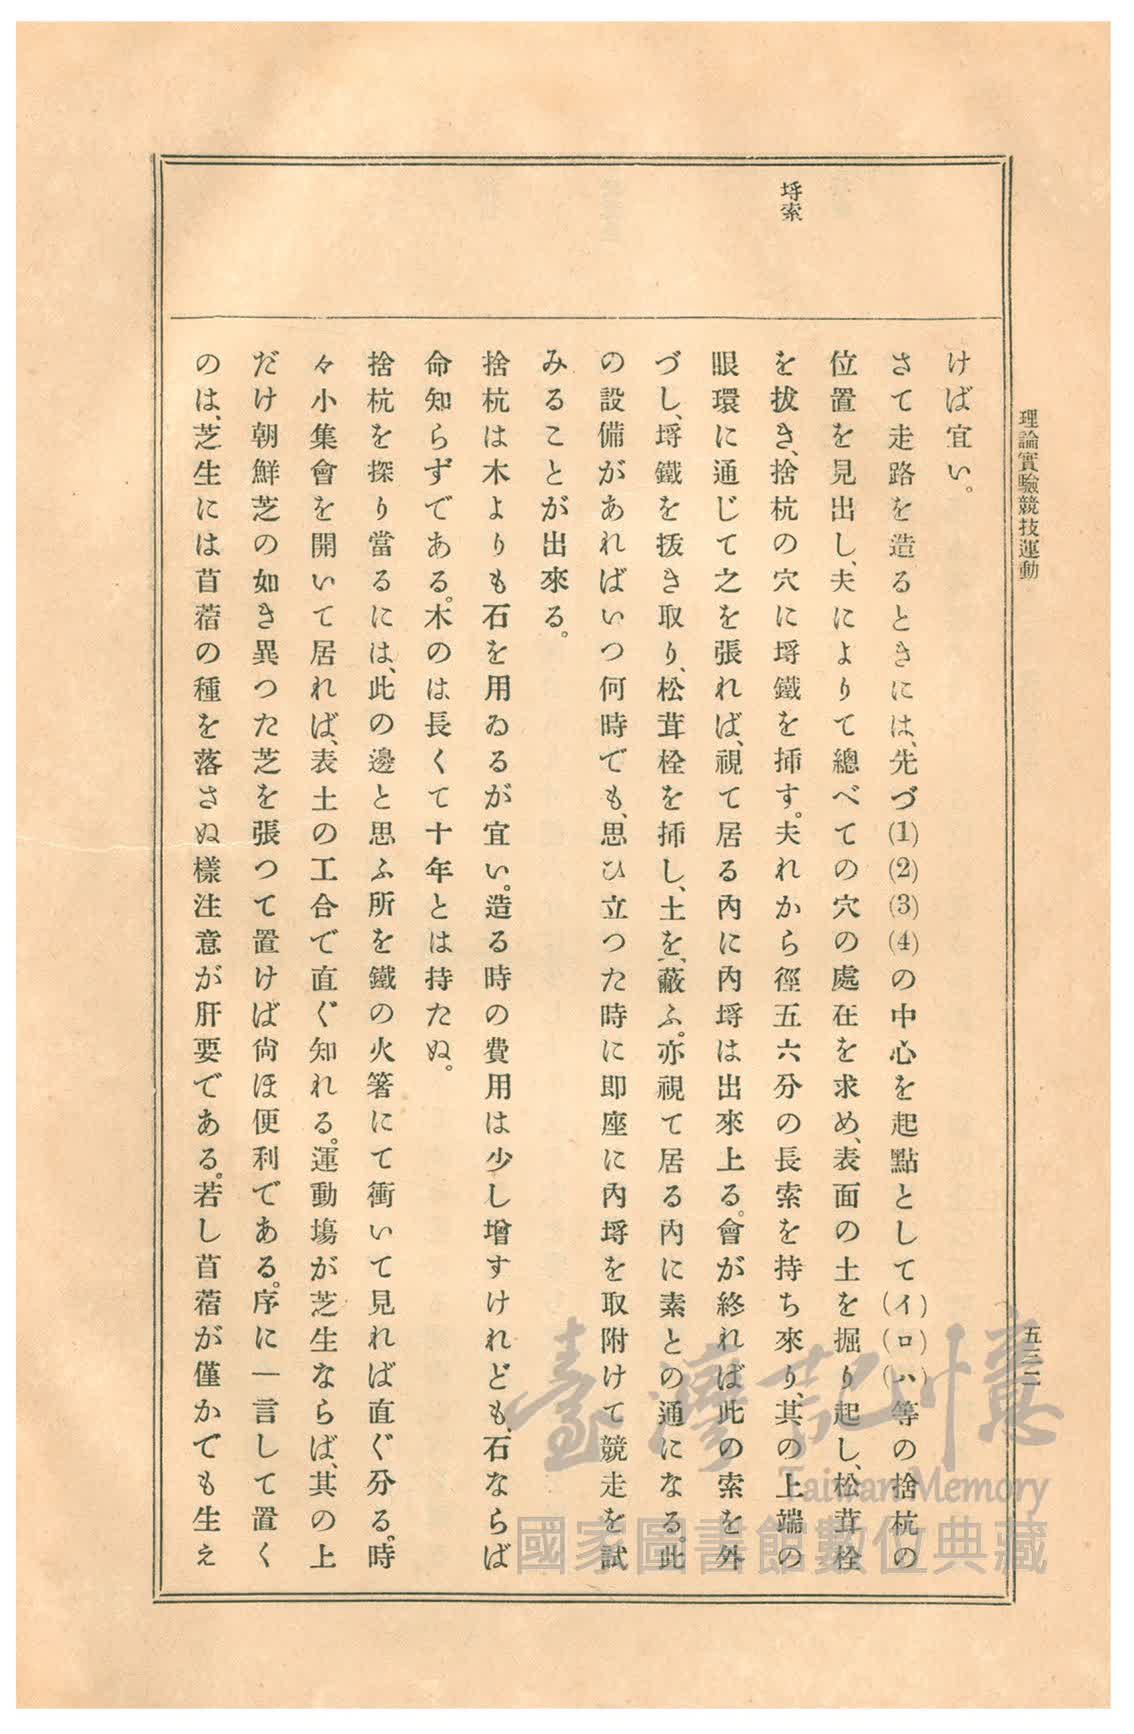 理論實驗競技運動
五三二
埒索
けば宜い。
さて走路を造るときには、先づ(1)(2)(3)(4)の中心を起點として(イ)(ロ)(ハ)等の捨杭の
位置を見出し、夫によりて總べての穴の處在を求め、表面の土を掘り起し、松茸栓
を拔き、捨杭の穴に埒鐵を揷す。夫れから徑五六分の長索を持ち來り、其の上端の
眼環に通じて之を張れば、視て居る內に內埒は出來上る。會が終れば此の索を外
づし、埒鐵を拔き取り、松茸栓を揷し、土を、蔽ふ。亦視て居る內に素との通になる。此
の設備があればいつ何時でも、思ひ立つた時に卽座に內埒を取附けて競走を試
みることが出來る。
捨杭は木よりも石を用ゐるが宜い。造る時の費用は少し增すけれども、石ならば
命知らずである。木のは長くて十年とは持たぬ。
捨杭を探り當るには、此の邊と思ふ所を鐵の火箸にて衝いて見れば直ぐ分る。時
々小集會を開いて居れば、表土の工合で直ぐ知れる。運動塲が芝生ならば、其の上
だけ朝鮮芝の如き異つた芝を張つて置けば尙ほ便利である。序に一言して置く
のは、芝生には苜蓿の種を落さぬ樣注意が肝要である。若し苜蓿が僅かでも生え
臺灣記憶
Taiwan Memory
國家圖書館數位典藏